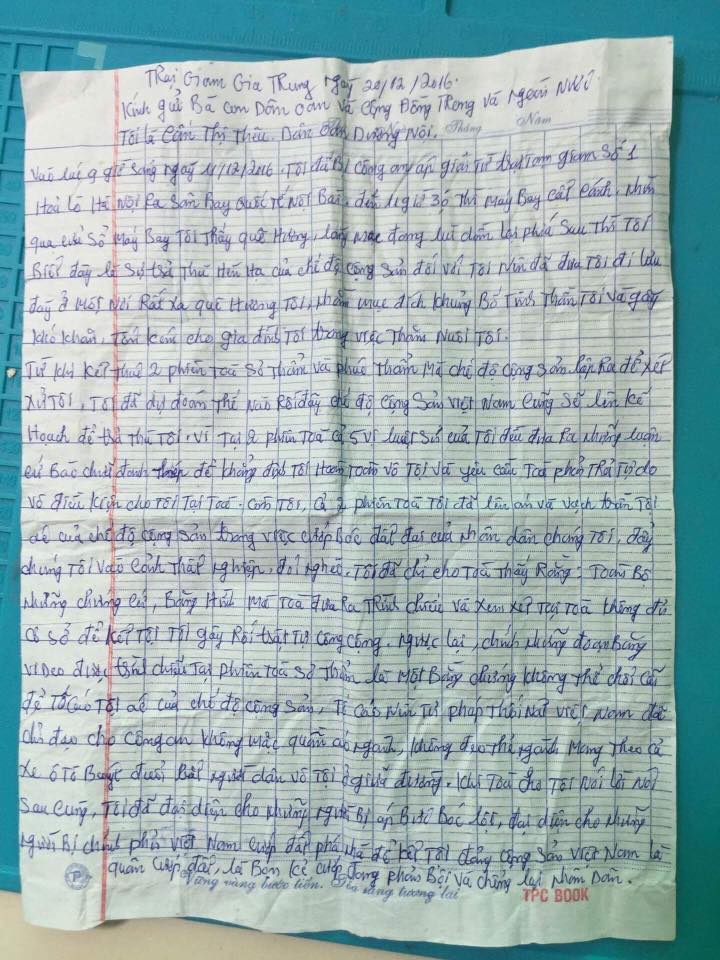 Trại Giam Gia Trung ngày 20/12/2016.
Kính gửi Bà con Dân oan và Cộng Đồng Trong và Ngoài Nước
Tôi là Cấn Thị Thêu. Dân oan Dương Nội. Tháng Năm
Vào lúc 9 giờ sáng ngày 11/12/2016. Tôi đã Bị công an áp giải Từ trại Tạm giam Số 1
Hoả lò Hà Nội Ra Sân Bay Quốc Tế Nội Bài, đến 11 giờ 30 Thì Máy Bay cất cánh, nhìn
qua cửa Sổ Máy Bay Tôi Thấy quê Hương, làng mạc đang lùi dần lại phía Sau Thì Tôi
Biết đây là Sự trả Thù Hèn Hạ của chế độ cộng Sản đối với Tôi Nên đã đưa Tôi đi lưu
đày ở Một Nơi Rất Xa quê Hương Tôi, nhằm mục đích khủng Bố Tinh Thần Tôi Và gây
khó khăn, Tốn kém cho gia đình Tôi trong việc Thăm Nuôi Tôi.
Từ khi kết thúc 2 phiên Toà Sơ Thẩm và phúc Thẩm Mà chế độ cộng Sản lập Ra để xét
xử Tôi, Tôi đã dự đoán Thế nào Rồi đây chế độ cộng Sản Việt Nam cũng Sẽ lên kế
Hoạch để trả thù Tôi. Vì Tại 2 phiên Toà cả 5 vị luật Sư của Tôi đều đưa Ra những luận
cứ Bào chữa đanh thép để khẳng định Tôi Hoàn Toàn vô Tội Và yêu cầu Toà phải TRả Tự do
vô điều kiện cho Tôi Tại Toà. Còn Tôi, cả 2 phiên Toà Tôi đã lên án và vạch trần Tội
ác của chế độ cộng Sản trong việc cướp Bóc đất đai của nhân dân chúng Tôi, đẩy
chúng Tôi vào cảnh Thất nghiệp, đói nghèo. Tôi đã chỉ cho Toà Thấy Rằng: Toàn Bộ
những chứng cứ, Băng Hình Mà Toà đưa Ra Trình chiếu và xem xét Tại Toà không đủ
cơ Sở để kết Tội Tôi gây Rối trật Tự công cộng. ngược lại, chính những đoạn Băng
video được trình chiếu Tại phiên Toà Sơ Thẩm là Một Bằng chứng không thể chối cãi
để Tố Cáo Tội ác của chế độ cộng Sản, Tố cáo Nền Tư pháp Thối Nát Việt Nam đã
chỉ đạo cho Công an không mặc quần áo ngành, không đeo thẻ ngành Mang Theo cả
xe ô Tô Buýt đuổi Bắt người dân vô Tội ở giữa đường. Khi Toà cho Tôi Nói lời Nói
Sau Cùng, Tôi đã đại diện cho những người Bị áp Bức Bóc lột, đại diện cho những
người Bị chính phủ Việt Nam cướp đất phá nhà để kết Tội đảng cộng Sản Việt Nam là
quân cướp đất, là Bọn kẻ cướp đang phản Bội Và chống lại nhân Dân.
Vững vàng bước tiến. Tỏa sáng tương lai TPC BOOK